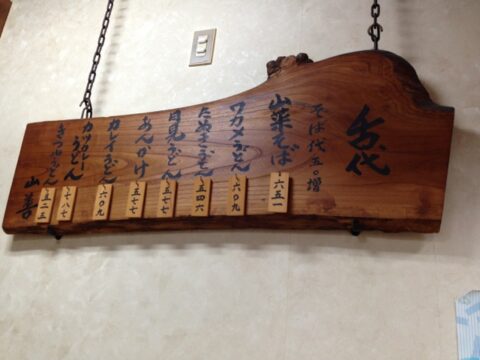 舌代
そば代五〇増
山菜そば
六五一
ワカメうどん
六〇九
たぬきうどん
五四六
月見うどん
五七七
あんかけ
五七七
カレイうどん
六〇九
カツカレー
うどん
七八七
きつねうどん
五二三
山善